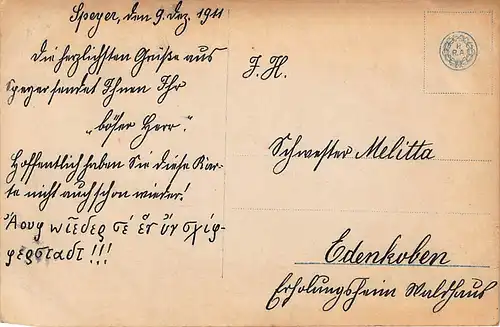 Speyer, den 9. Dez. 1911
Die herzlichsten Grüße aus
Speyer sendet Ihnen Ihr
„böser Herr“.
Hoffentlich haben Sie diese Kar-
te nicht auch schon wieder!
Ἀουφ wῖεδερ σέ ἕν ὕν σχίφ-
φερσταδτ!!!
F. H.
Schwester Melitta
Edenkoben
Erholungsheim Waldhaus